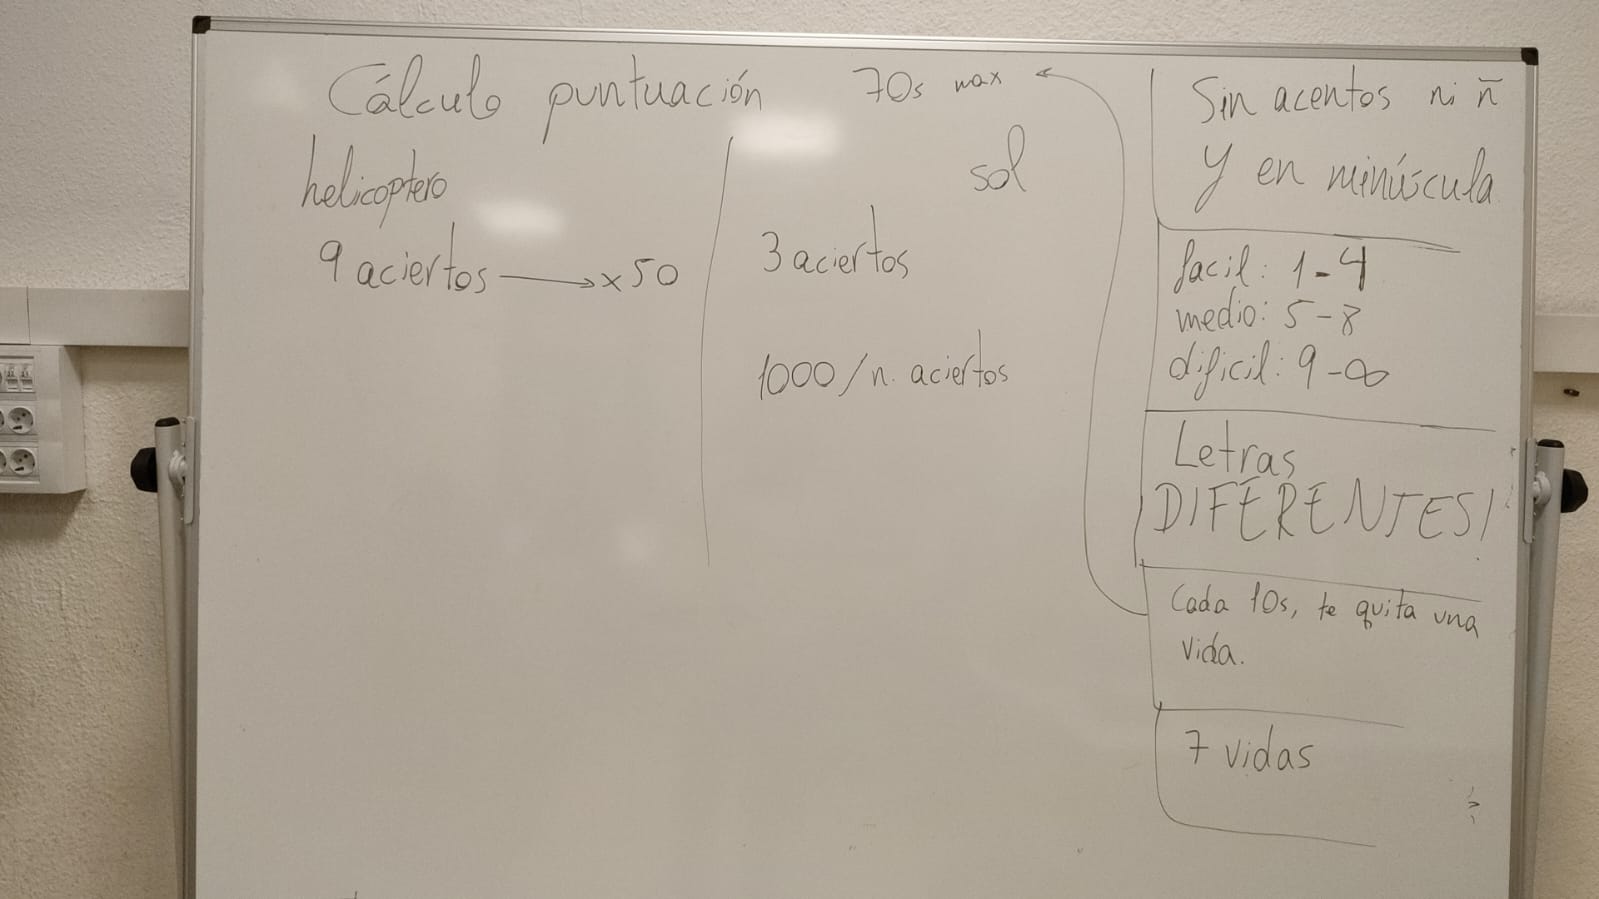 Cálculo puntuación
70s max
helicoptero
9 aciertos → x 50
sol
3 aciertos
1000 / n. aciertos
Sin acentos ni ñ
y en minúscula
facil: 1-4
medio: 5-8
dificil: 9-∞
Letras
DIFERENTES!
Cada 10s, te quita una
vida.
7 vidas